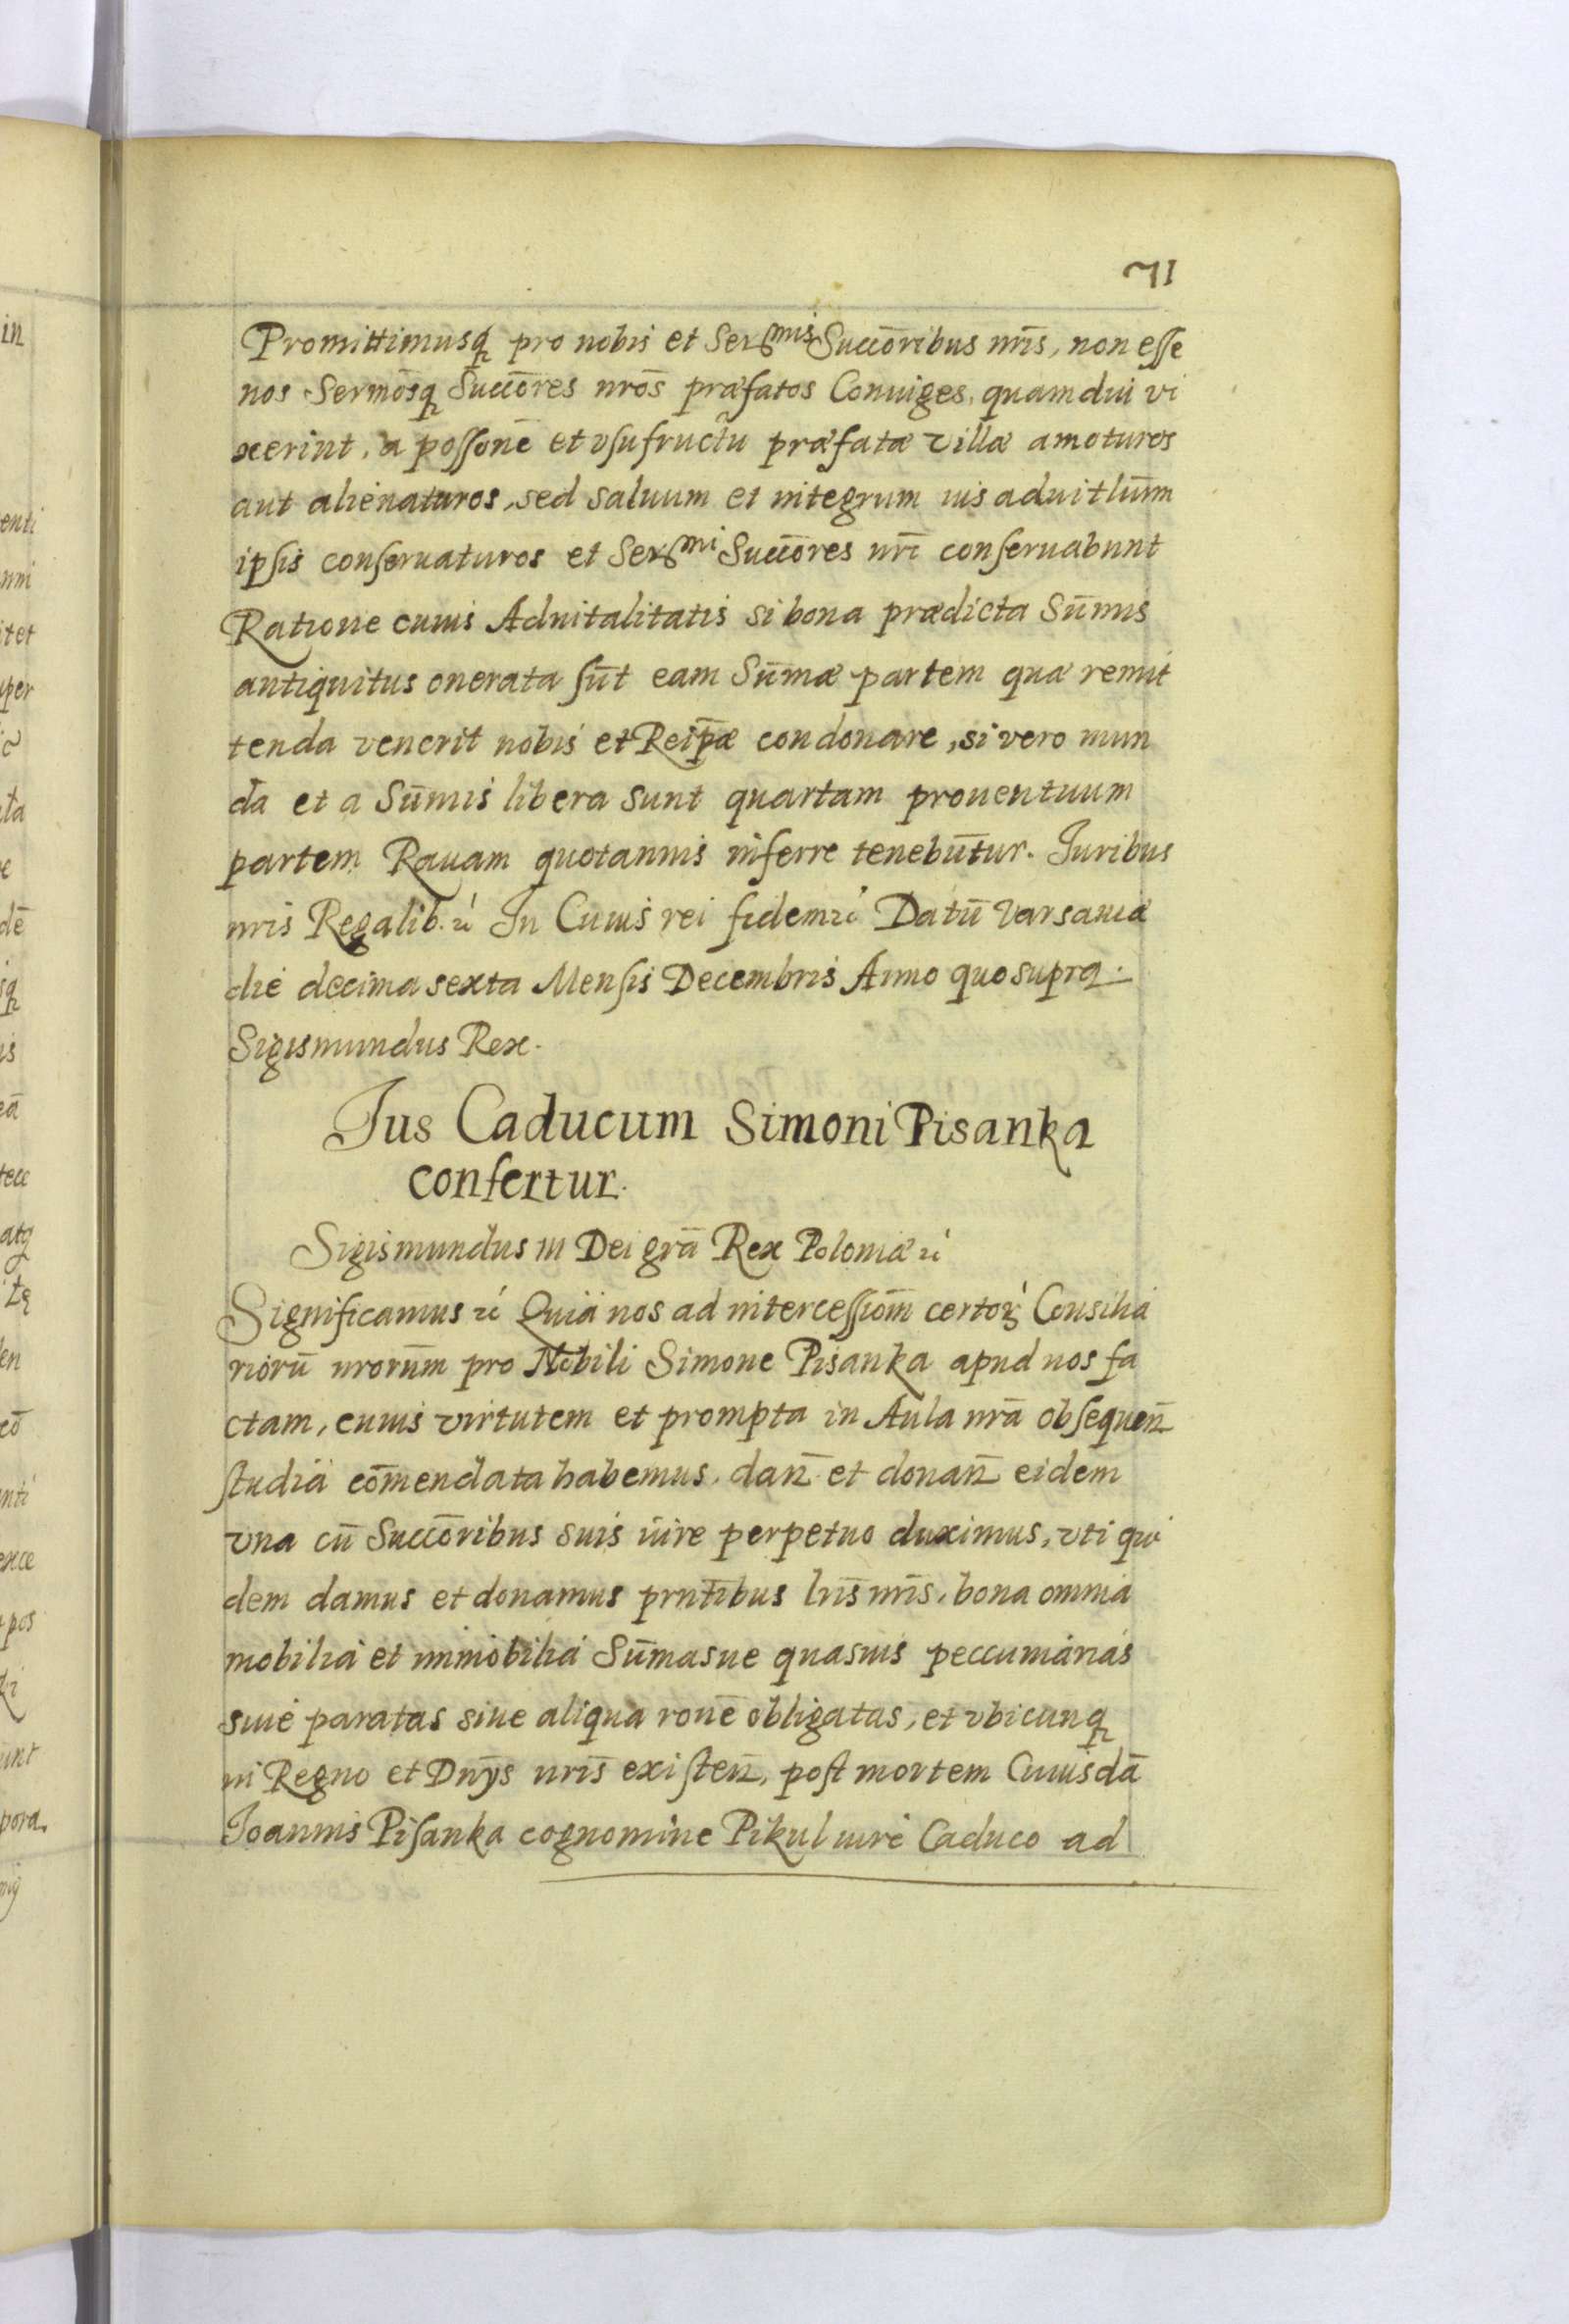 71
Promittimusq pro nobis et Ser̃mis Succōribus nr̄is, non esse
nos Sermōsq Succōres nrōs præfatos Coniuges, quamdiu vi
xerint, a possonē et vsufructu præfatæ villæ amoturos
aut alienaturos, sed saluum et integrum ius aduitlūm
ipsis conseruaturos et Ser̃mi Succōres nrī conseruabunt
Ratione cuius Aduitalitatis si bona prædicta Sūmis
antiquitus onerata sūt eam Sūmæ partem quæ remit
tenda venerit nobis et Reip̄æ condonare, si vero mun
da et a Sūmis libera sunt quartam prouentuum
partem Rauam quotannis inferre tenebūtur. Iuribus
nris Regalib. rć In Cuius rei fidem rć Datū Varsauiæ
die decima sexta Mensis Decembris Anno quo supra.
Sigismundus Rex.
Ius Caducum Simoni Pisanka
confertur.
Sigismundus III Dei grā Rex Poloniæ rć
Significamus rć Quia nos ad intercessiom̄ certoꝝ Consilia
riorū nrorūm pro Nobili Simone Pisanka apud nos fa
ctam, cuius virtutem et prompta in Aula nrā obsequen̄
studia cōmendata habemus, dan̄ et donan̄ eidem
vna cū Succōribus suis iure perpetuo duximus, vti qui
dem damus et donamus prntībus lrīs nrīs, bona omnia
mobilia et immobilia Sūmasue quasuis peccuniarias
siue paratas siue aliqua ronē obligatas, et vbicunq
in Regno et Dnȳs nrīs existen̄, post mortem Cuiusdā
Ioannis Pisanka cognomine Pikul iure Caduco ad